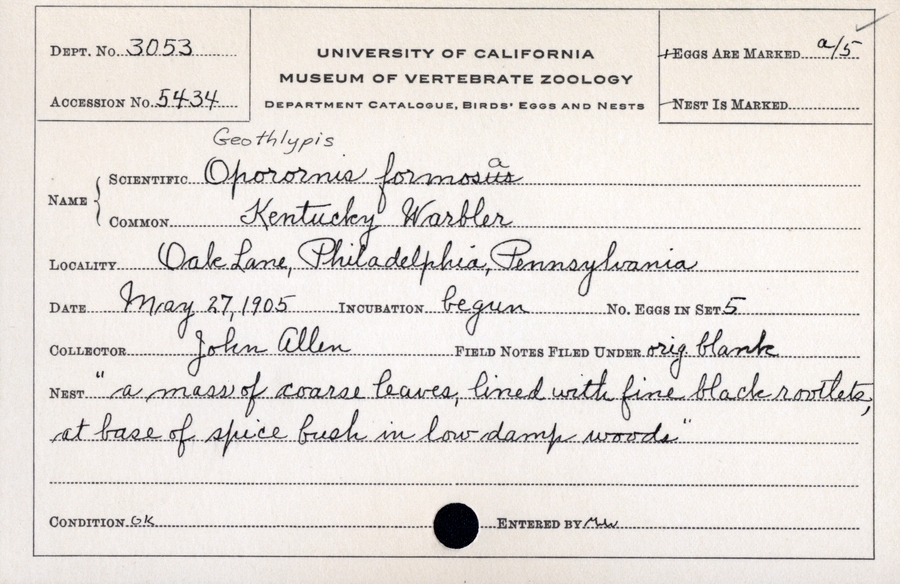 Dept. No. 3053
Accession No. 5434
UNIVERSITY OF CALIFORNIA
MUSEUM OF VERTEBRATE ZOOLOGY
Department Catalogue, Birds' Eggs and Nests
Eggs Are Marked a/5
Nest Is Marked
Geothlypis
a
Name { Scientific Oporornis formosus
Common Kentucky Warbler
Locality Oak Lane, Philadelphia, Pennsylvania
Date May 27, 1905 Incubation begun No. Eggs in Set 5
Collector John Allen Field Notes Filed Under orig. blank
Nest "a mass of coarse leaves, lined with fine black rootlets,
at base of spice bush in low damp woods"
Condition OK Entered by